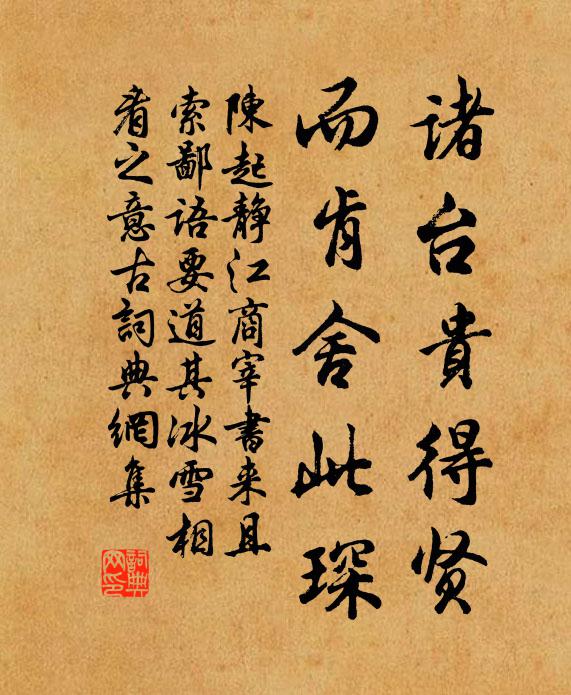 诸台貴得贤
而肯舍此琛
陳起静江商宰書来且
索鄙語要道其冰雪相
看之意古詞典網集
詞典網印